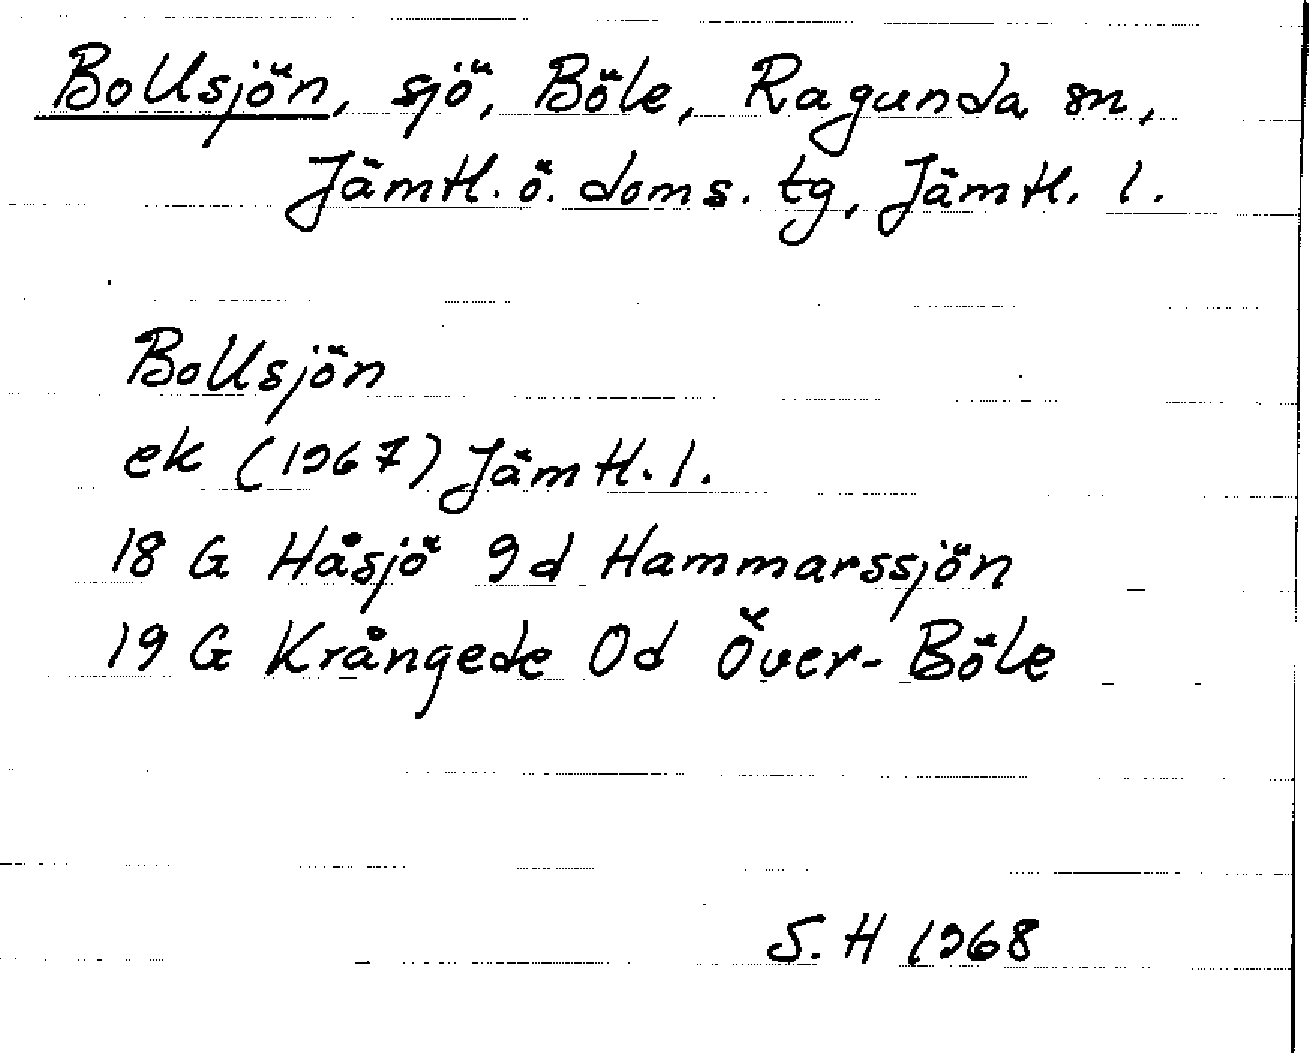 Bollsjön, sjö, Böle, Ragunda sn,
Jämtl. ö. doms. tg, Jämtl. l.
Bollsjön
ek (1967) Jämtl. l.
18 G Håsjö 9d Hammarssjön
19 G Krångede 0d Över-Böle
S. H 1968